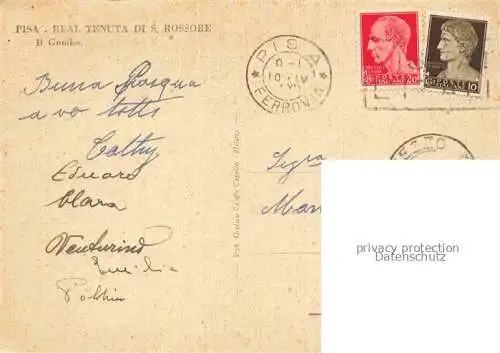 PISA - REAL TENUTA DI S. ROSSORE
Il Gombo.
Buona Pasqua
a voi tutti
Cathy
Eduard
Clara
Venturino
Emilia
PISA
FERROVIA
POSTE ITALIANE
CENT 20
CENT 10
EZZO
Sigra
Mar
privacy protection
Datenschutz